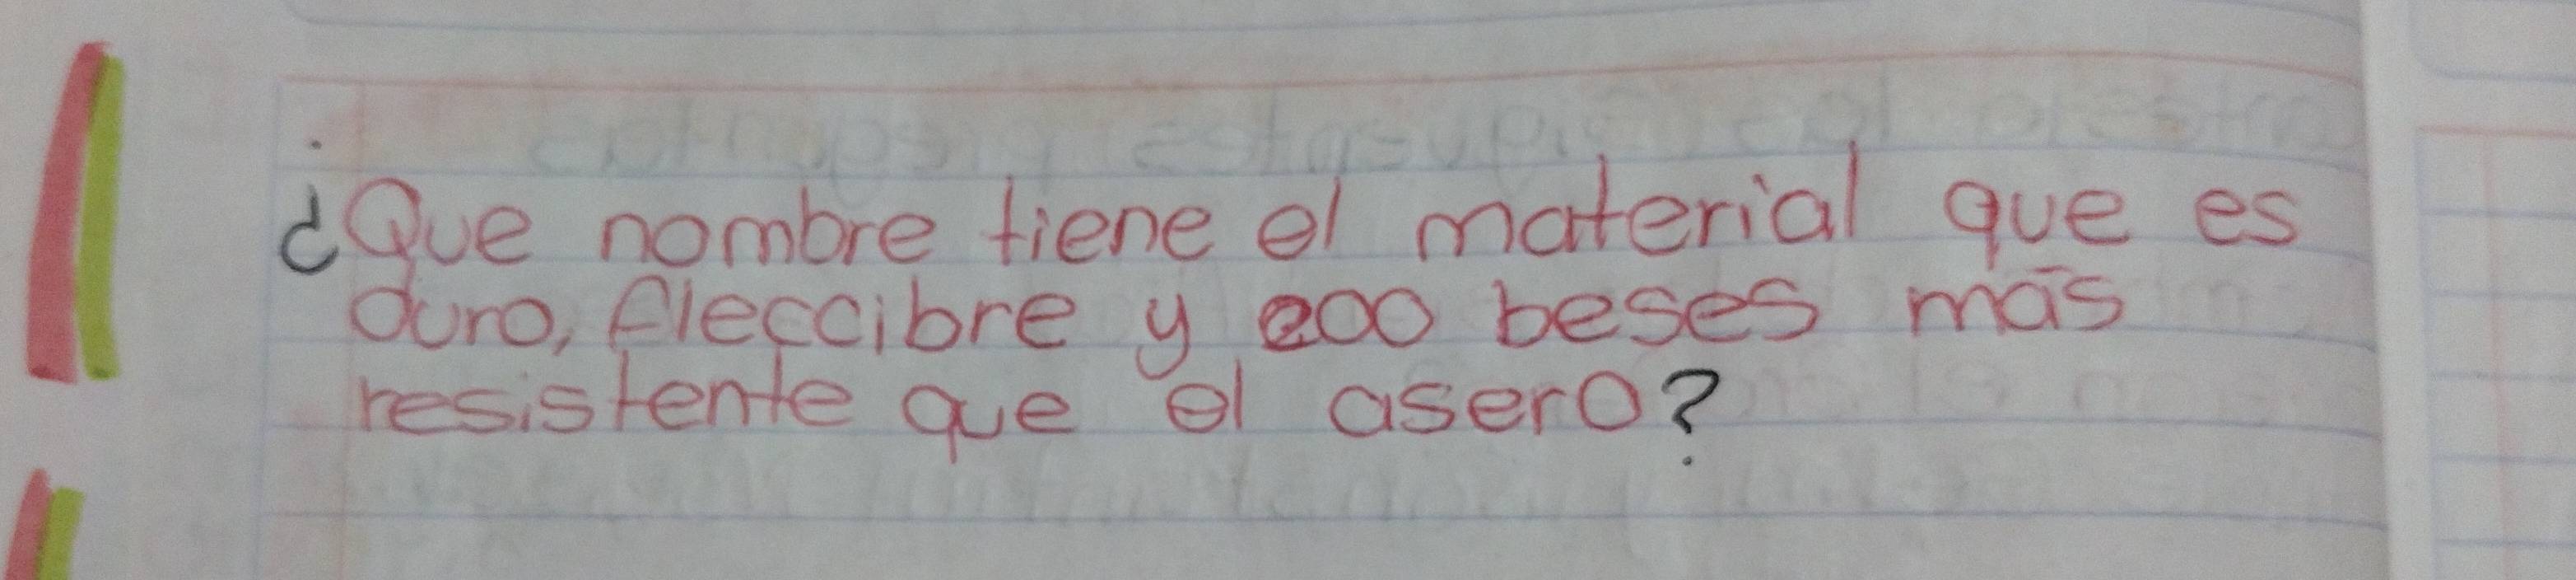 ¿Que nombre tiene el material que es
duro, fleccibre y 200 beses más
resistente que el asero?